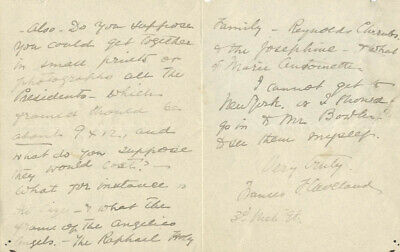 - Also - Do you suppose
you could get together
in small prints or
photographs all the
Presidents - which
framed should be
about 9 x 12, and
what do you suppose
they would cost? -
What for instance is
the size - & what the
frame of the Angelico
Angels. - The Raphael Holy
Family - Reynolds Cherubs
& the Josephine - & what
of Marie Antoinette.
I cannot get to
New York. or I should
go in to Mr
& see them myself.
Very truly.
Frances F. Cleveland